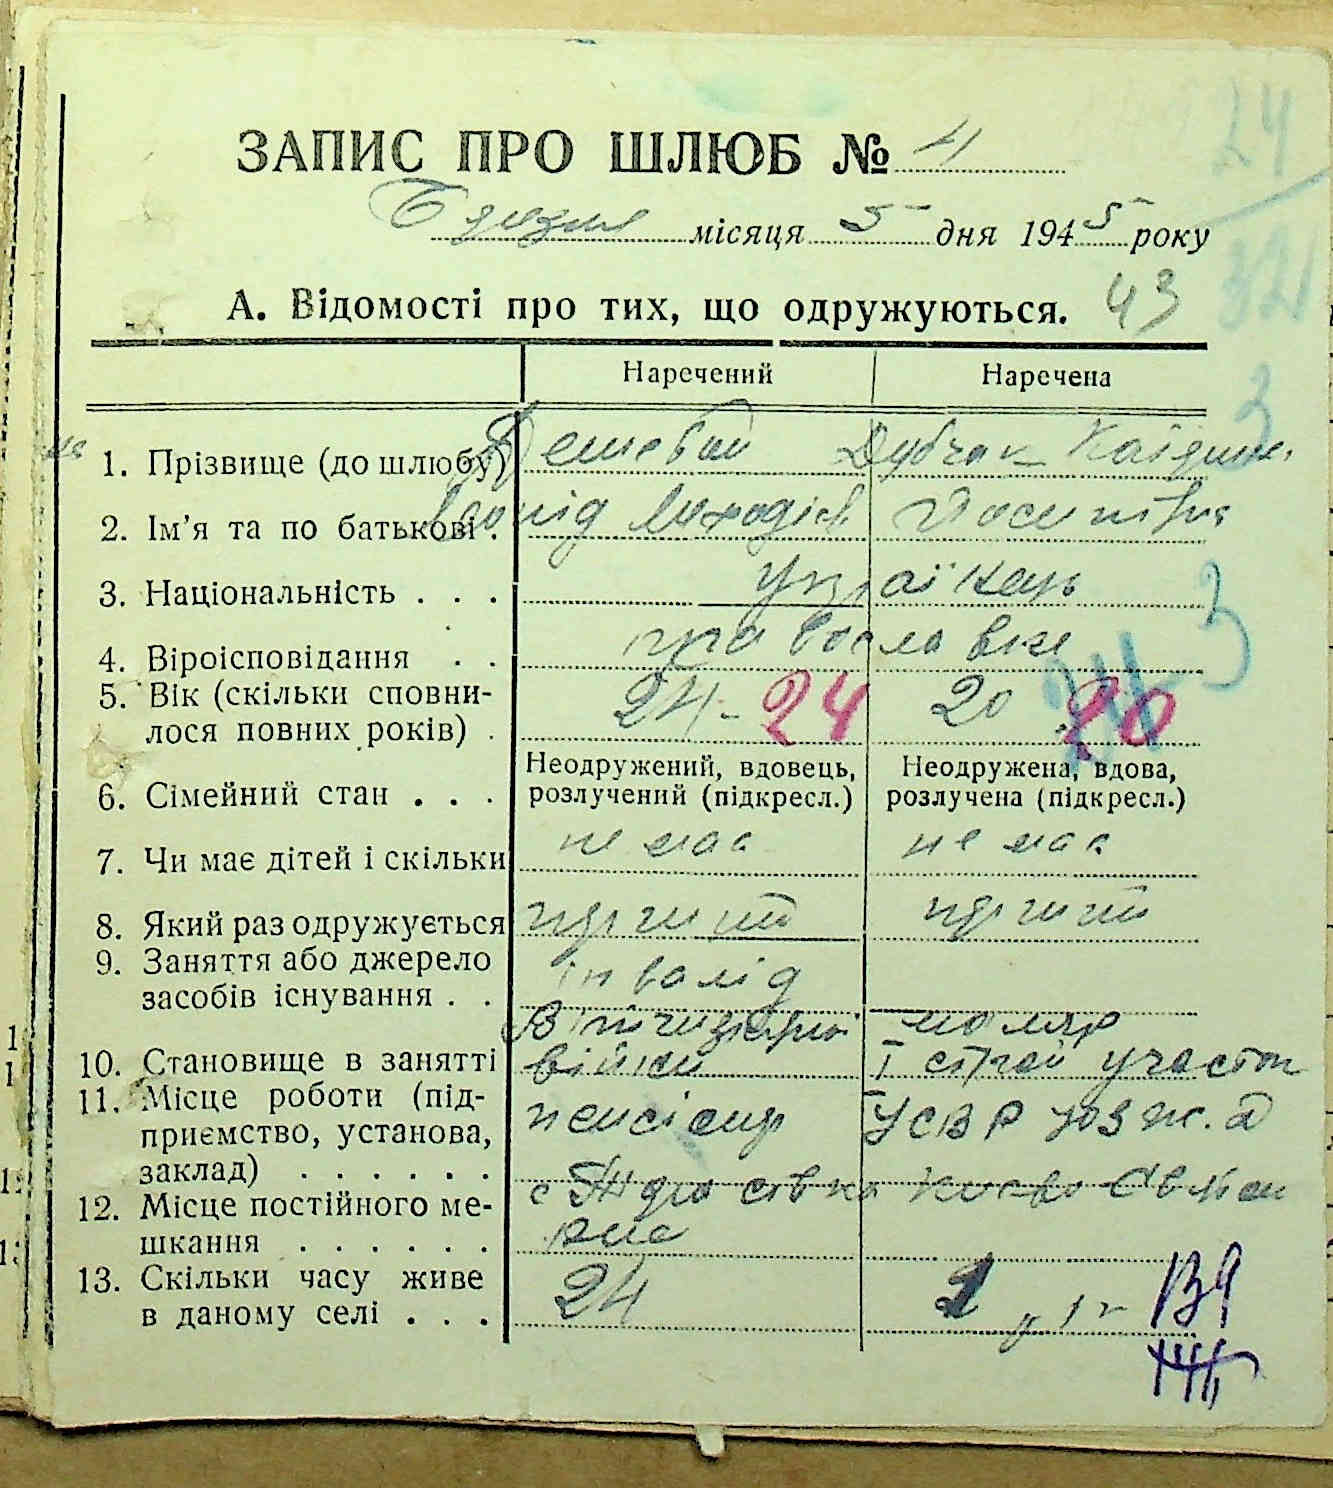 ЗАПИС ПРО ШЛЮБ № 4
місяця 5 дня 1945 року
А. Відомості про тих, що одружуються. 43
Наречений Наречена
1. Прізвище (до шлюбу) Дубчак
2. Ім'я та по батькові . Леонід
3. Національність . . . українець
4. Віроісповідання . . православне
5. Вік (скільки сповни-
лося повних років) . 24 - 24 20 20
Неодружений, вдовець, Неодружена, вдова,
6. Сімейний стан . . . розлучений (підкресл.) розлучена (підкресл.)
7. Чи має дітей і скільки не має не має
8. Який раз одружується перший перший
9. Заняття або джерело
засобів існування . . інвалід
Вітчизняної маляр
10. Становище в занятті війни 1 строй участок
11. Місце роботи (під-
приємство, установа, пенсіонер УСВР ЮЗ ж. д
заклад) . . . . . .
12. Місце постійного ме- с
шкання . . . . . .
13. Скільки часу живе
в даному селі . . . 24